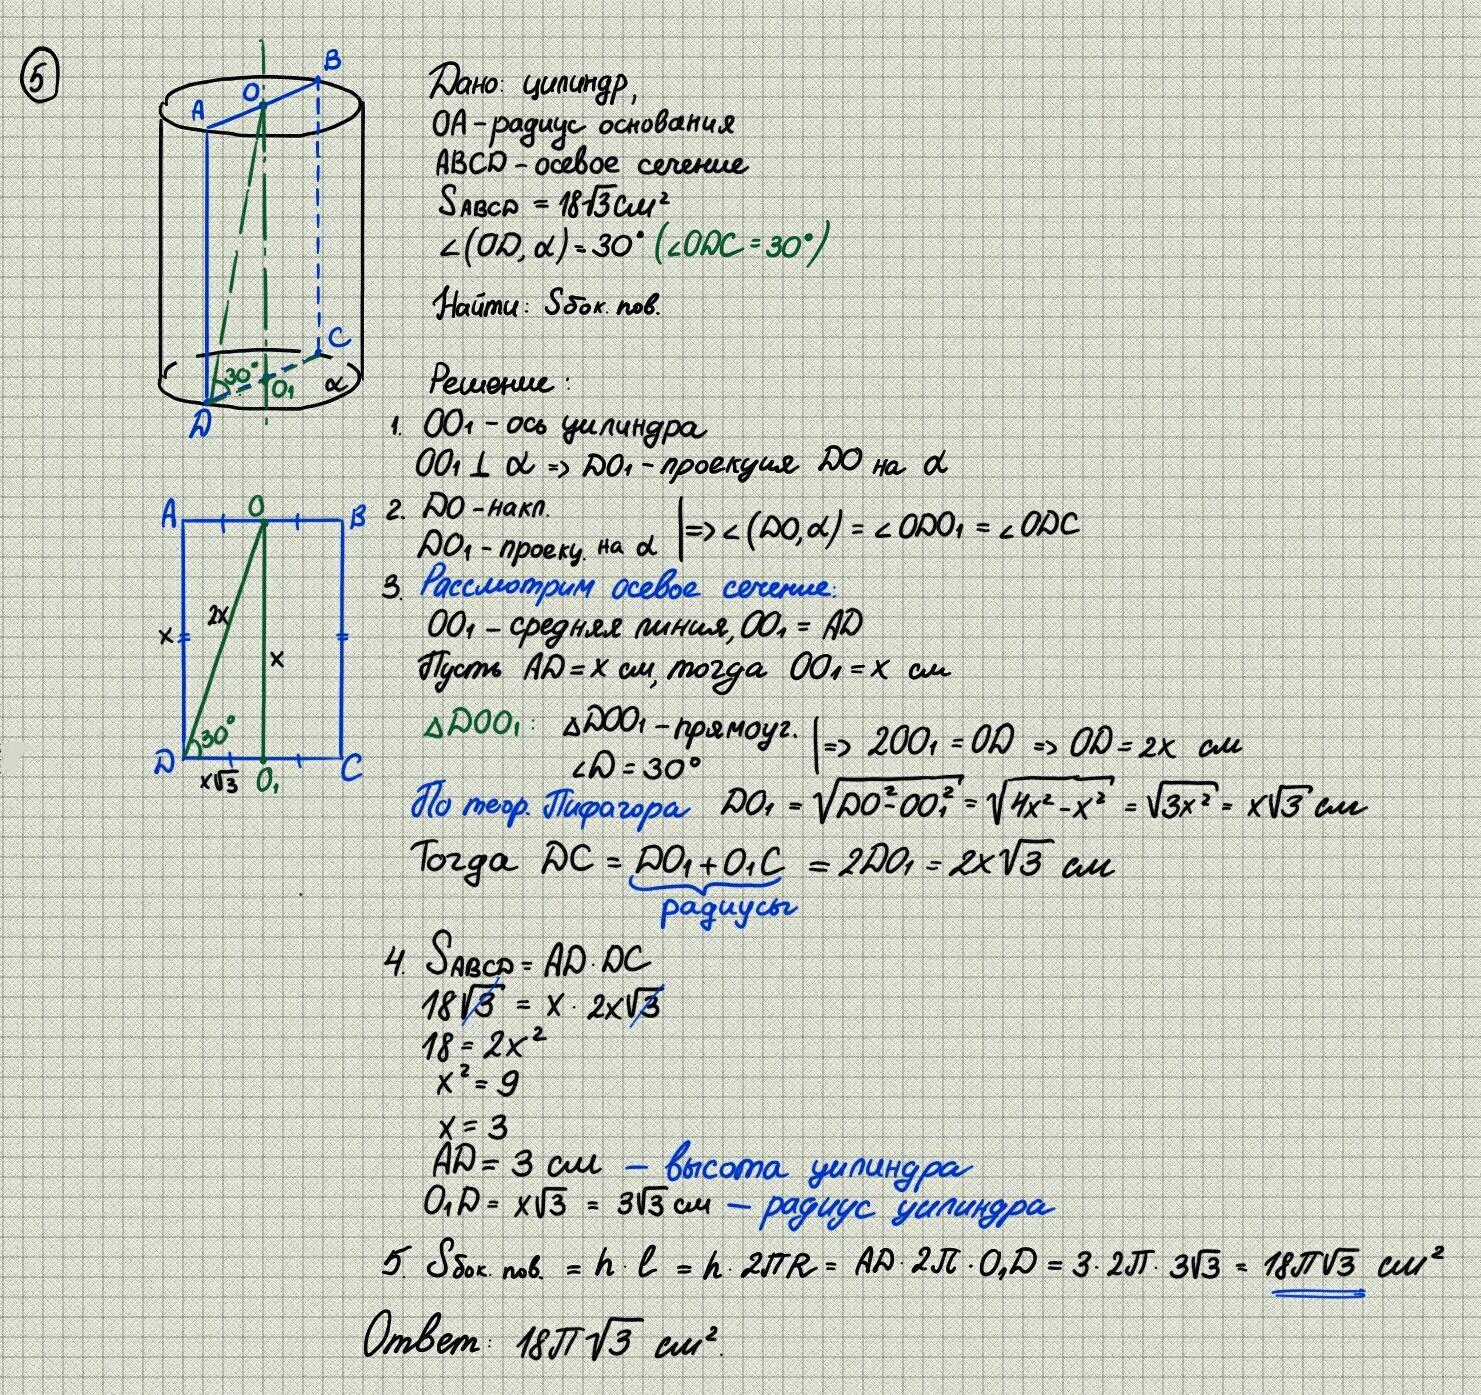 5
B
O
A
C
30°
O₁
α
D
Дано: цилиндр,
OA - радиус основания
ABCD - осевое сечение
S ABCD = 18√3 см²
∠(OD, α) = 30° (∠ODC = 30°)
Найти: S бок. пов.
Решение:
1. OO₁ - ось цилиндра
OO₁ ⊥ α => DO₁ - проекция DO на α
2. DO - накл.
DO₁ - проекц. на α | => ∠(DO, α) = ∠ODO₁ = ∠ODC
3. Рассмотрим осевое сечение:
OO₁ - средняя линия, OO₁ = AD
Пусть AD = x см, тогда OO₁ = x см
A O B
2x
x
x
30°
D O₁ C
x√3
△DOO₁: △DOO₁ - прямоуг.
∠D = 30° | => 2OO₁ = OD => OD = 2x см
По теор. Пифагора DO₁ = √DO² - OO₁² = √4x² - x² = √3x² = x√3 см
Тогда DC = DO₁ + O₁C = 2DO₁ = 2x√3 см
радиусы
4. S ABCD = AD · DC
18√3 = x · 2x√3
18 = 2x²
x² = 9
x = 3
AD = 3 см - высота цилиндра
O₁D = x√3 = 3√3 см - радиус цилиндра
5. S бок. пов. = h · l = h · 2πR = AD · 2π · O₁D = 3 · 2π · 3√3 = 18π√3 см²
Ответ: 18π√3 см².